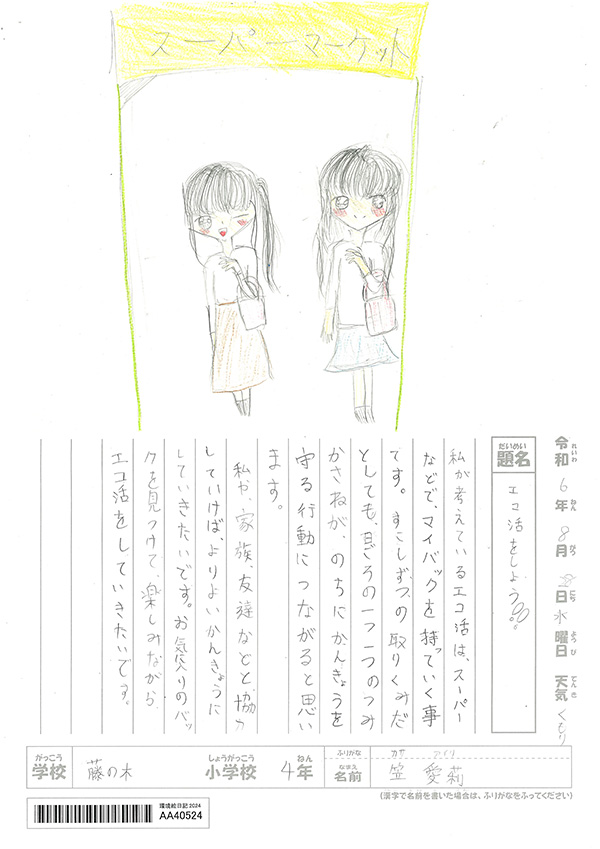 スーパーマーケット
令和6年8月 日水曜日 天気くもり
れいわ ねん がつ にち ようび てんき
だいめい
題名
エコ活をしよう!!
私が考えているエコ活は、スーパー
などで、マイバックを持っていく事
です。すこしずつの取りくみだ
としても、日ごろの一つ一つのつみ
かさねが、のちにかんきょうを
守る行動につながると思い
ます。
私や、家族、友達などと協力
していけば、よりよいかんきょうに
していきたいです。お気に入りのバッ
クを見つけて、楽しみながら
エコ活をしていきたいです。
がっこう しょうがっこう ねん ふりがな カサ アイリ
学校 藤の木 小学校 4年 なまえ 名前 笠 愛莉
(漢字で名前を書いた場合は、ふりがなをふってください)
環境絵日記2024
AA40524